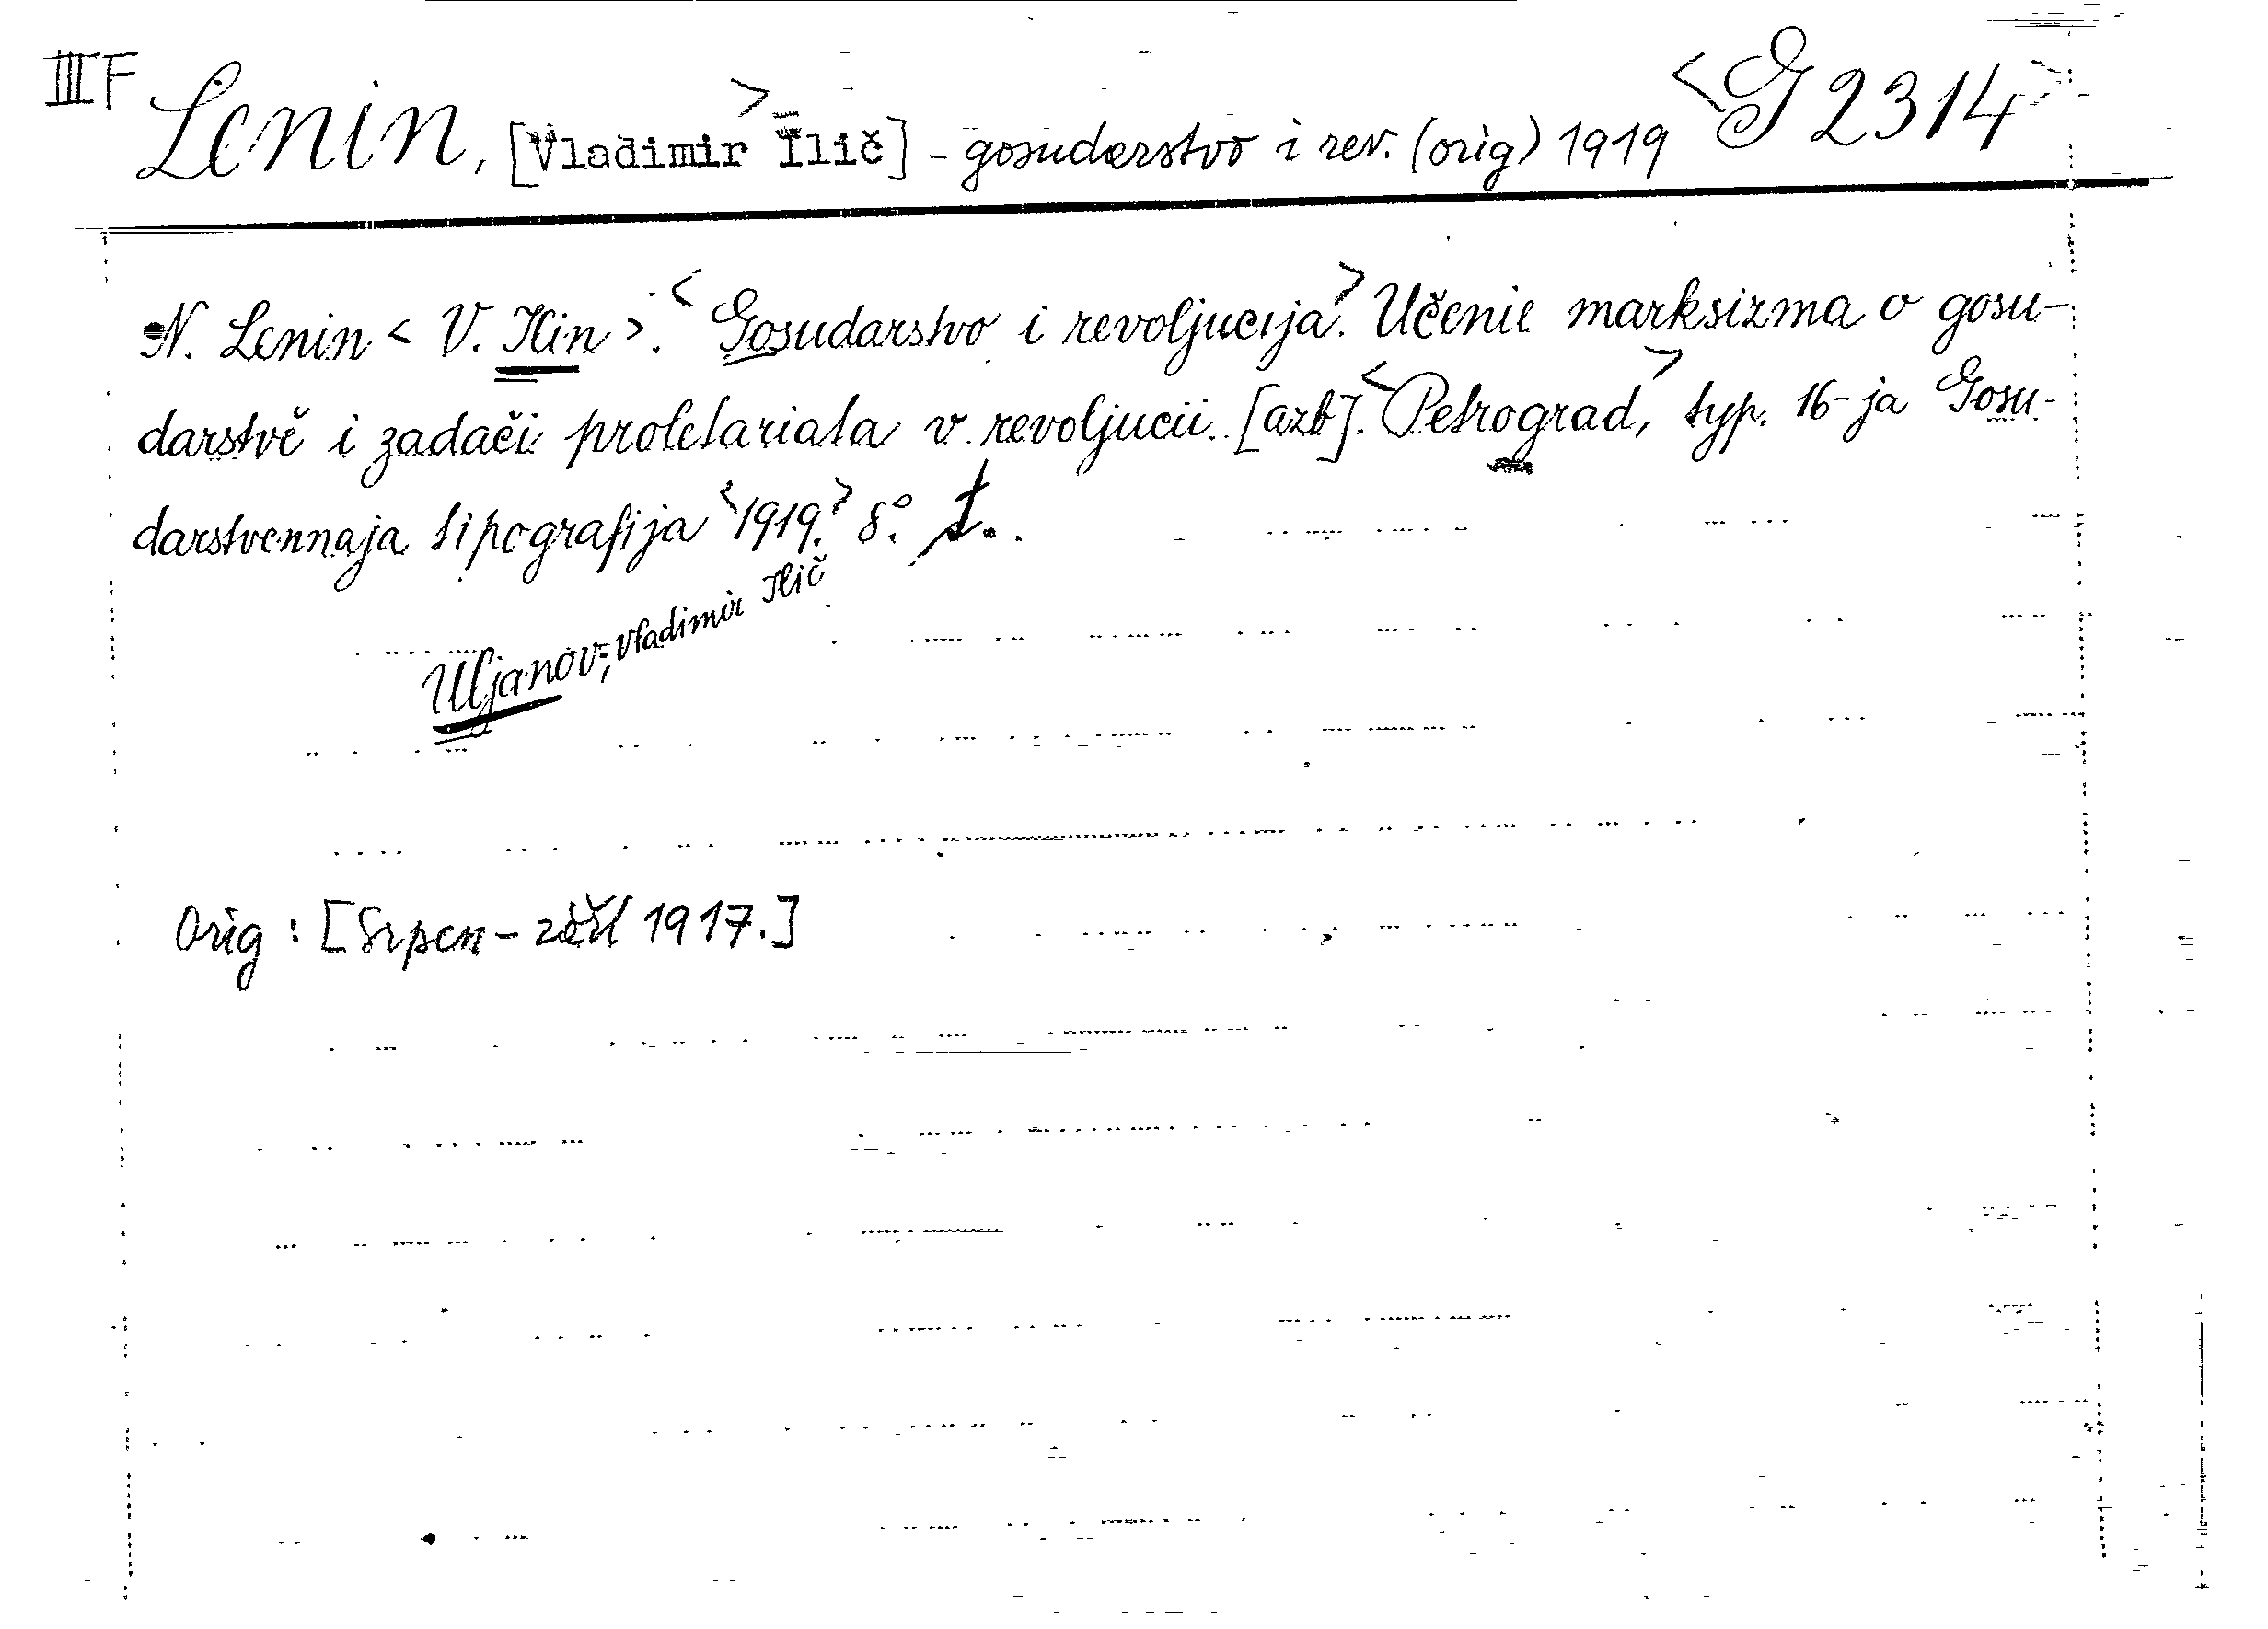 III F Lenin, [Vladimir Ilič] - gosudarstvo i rev. (orig) 1919 <G 2314>
N. Lenin < V. Ilin >. <Gosudarstvo i revoljucija.> Učenie marksizma o gosu-
darstvě i zadači proletariata v revoljucii. [azb]. <Petrograd,> typ. 16-ja Gosu-
darstvennaja tipografija <1919.> 8°.
Uljanov, Vladimir Ilič
Orig : [Srpen - září 1917.]